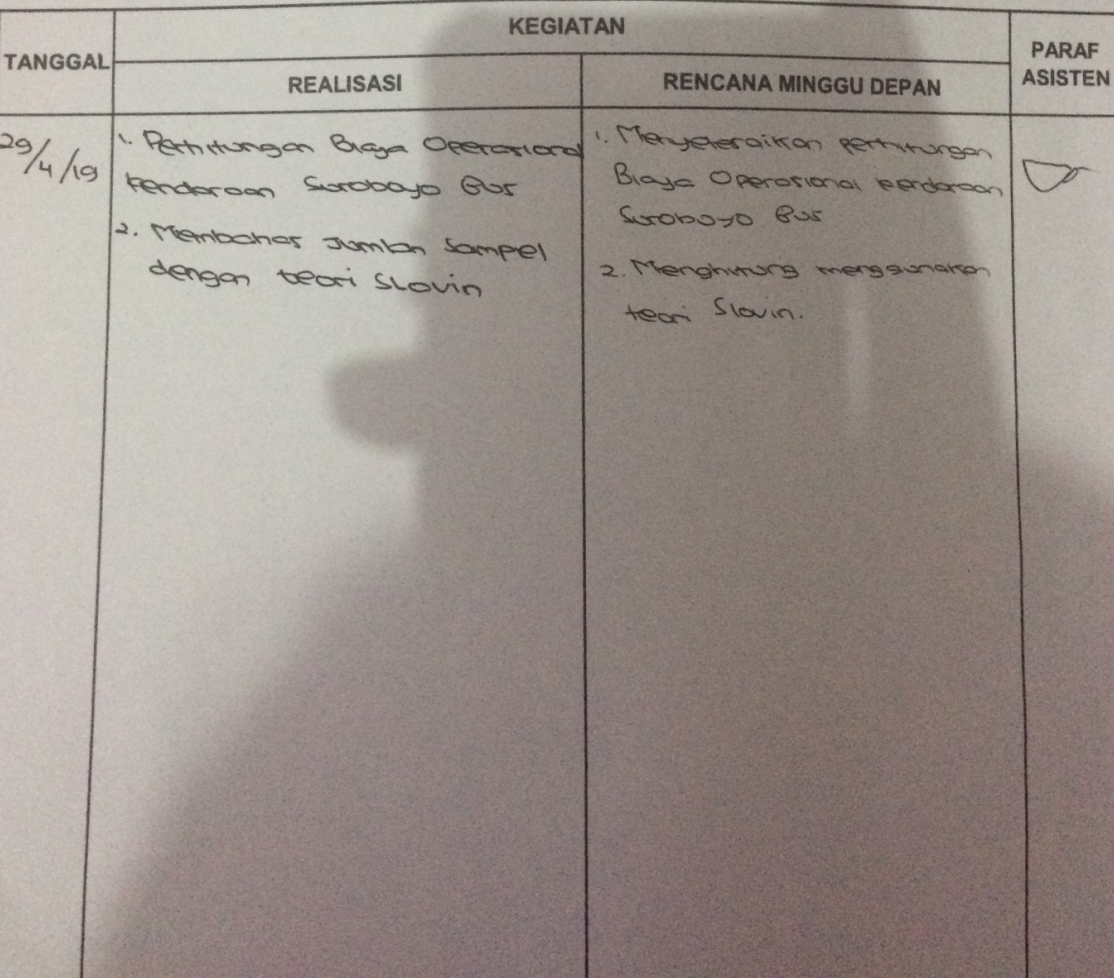 KEGIATAN
TANGGAL
PARAF
ASISTEN
REALISASI
RENCANA MINGGU DEPAN
29/4/19
1. Perhitungan Biaya Operasional
kendaraan Suroboyo Bus
2. Membahas Jumlah Sampel
dengan teori Slovin
1. Menyelesaikan perhitungan
Biaya Operasional kendaraan
Suroboyo Bus
2. Menghitung menggunakan
teori Slovin.